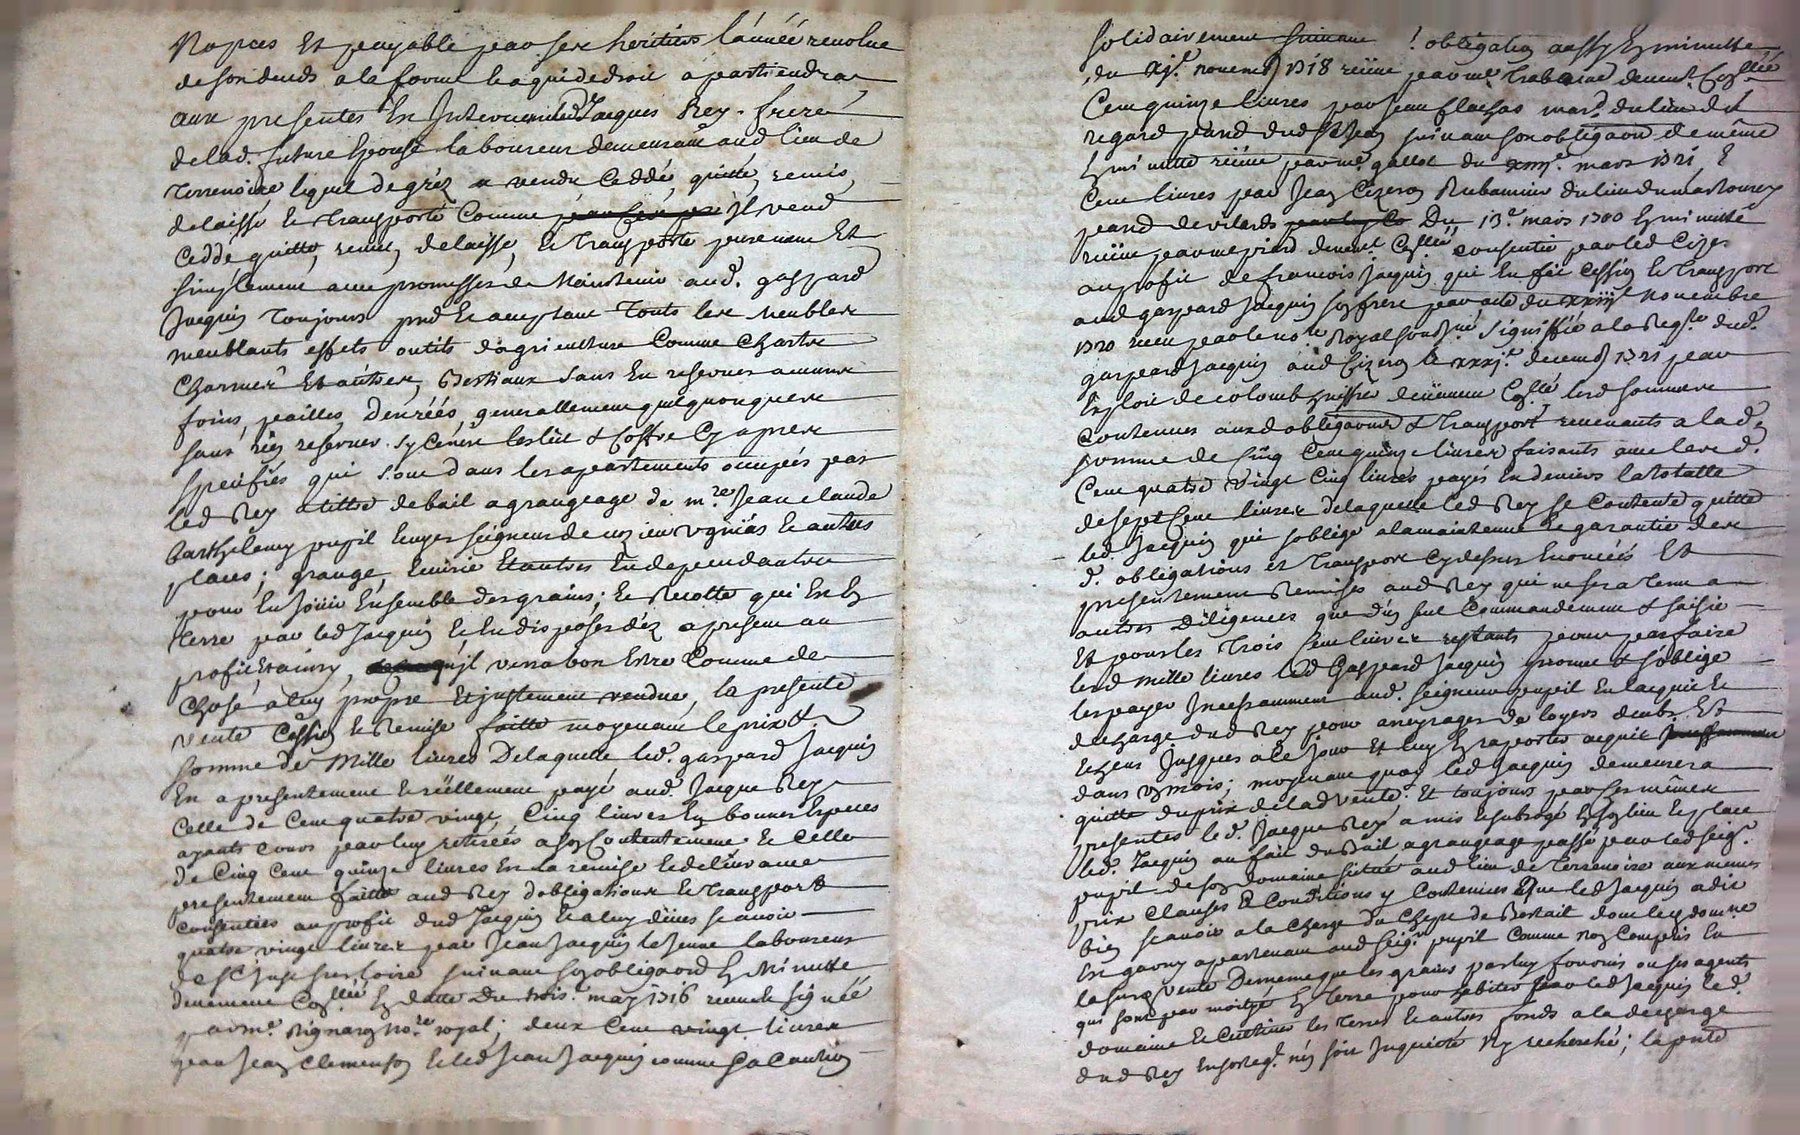 Nopces Et payable par ses heritiers l'année revolue
de son deceds a la forme ce a qui de droit apartiendra
aux presentes En Intervenu led Jacques Rey frere
de lad. future Epouse laboureur demeurant aud lieu de
Terrenoire lequel de gréz a vendu Ceddé, quitté, remis,
delaissé Et transporté Comme jl vend
Cedde quitte, remet, delaisse, Et transporte purement Et
simplement avec promesses de Maintenir aud. gaspard
Jacquin toujours pnt Et acceptant Touts les Meubles
meublants effets outils d'agriculture Comme Chartre
Charruer Et autres, Bestiaux sans En reserver aucune
foins, pailles, denréés, generallement quelquonques
sans rien reserver sy Cenest les lict & Coffre Cy apres
speciffiés qui sont dans les apartements occupés par
led Rey a tittre de bail a grangeage de mre Jean claude
barthelemy pupil Ecuyer seigneur de Et autres
places; grange, Ecurie Et autres En dependantes
pour En Jouir Ensemble des grains, Et Recolte qui Est En
terre par led Jacquin Et En disposer déz a present au
profit, Et ainsy, qu'jl verra bon Estre Comme de
Chose a luy propre Et justement vendue, la presente
vente Cession Et Remise faitte moyenant le prix &
somme de Mille livres De laquelle led. gaspard Jacquin
En a presentement Et reëllement payé aud Jacque Rey
Celle de Cent quatre vingt Cinq livres En bonnes Especes
ayants cours par luy retirées a son Contentement Et Celle
de Cinq Cent quinze livres En la remise Et delivrance
presentement faitte aud Rey d'obligations Et transports
Consenties au profit dud Jacquin Et a luy düües scavoir
quatre vingt livres par Jean Jacquin le Jeune laboureur
de St Just sur Loire suivant son obligaon En Minutte
deuement Conllée En datte Du trois may 1716 receu Et signéé
par me. Rignaron nore royal; deux Cent vingt livres
par Jean Clemenson Et led Jean Jacquin comme sa Caution
solidairement suivant obligation aussy En minutte
du xje. novemb 1718 reçüe par me Trab deuemt. Conllée
Cent quinze livres par Jean flachas mard. du lieu de
regard dud St Jean suivant son obligaon de même
En minutte recüe par me. gallot du mars 1721 &
Cent livres par Jean Cizeron Rubannier du lieu
Du 13e mars 1700 En minutte
recüe par me piard deuemt. Conllée consentie par led Cizeron
au profit de francois Jacquin qui En fait Cession Et transport
aud gaspard Jacquin son frere par acte du novembre
1720 receu par le nore Royal soussné. signiffié a la Reqte dud.
gaspard Jacquin aud Cizeron le xxxje decemb 1721 par
Exploit de colomb deüement Conllé lesd sommes
Contenues auxd obligaons & transport revenants a lad
somme de Cinq Cent quinze livres faisants avec lesd.
Cent quatre vingt Cinq livres payés En deniers la totalle
de sept Cent livres de laquelle led Rey se Contente quitte
led. Jacquin qui soblige a la maintenue Et garantie des
d. obligations Et transport Cy dessus Enoncéés Et
presentement Remises aud Rey qui ne sera tenu a
autres Diligences que d'un seul Commandement & saisie
Et pour les Trois Cent livres restants pour parfaire
lesd Mille livres led Gaspard Jacquin promet & s'oblige
les payer Incessamment aud. seigneur pupil En lacquit Et
decharge dud Rey pour arreyrages de loyers deubs Et
Echeus Jusques a ce Jour Et luy En raporter acquit
dans mois; moyenant quoy led Jacquin demeurera
quitte du prix de lad vente. Et toujours par ses mêmes
presentes led. Jacque Rey a mis Et subrogé En son lieu Et place
led. Jacquin au fait du Bail a grangeage passé par led seigr.
pupil de son domaine situé aud lieu de Terrenoire aux memes
prix Clauses & Conditions y Contenües Que led Jacquin a dit
bien scavoir a la charge du Chepre de Bestail dont led domne
Est garny apartenant aud seigr pupil Comme non Compris En
la susd vente De meme que les grains par luy fournis ou ses agents
qui sont par moitye En Terre pour habiter par led Jacquin led.
domaine Et Cultiver les terres Et autres fonds a la decharge
dud Rey En sorte q. n'en soit Inquieté Ny recherché; la pnte